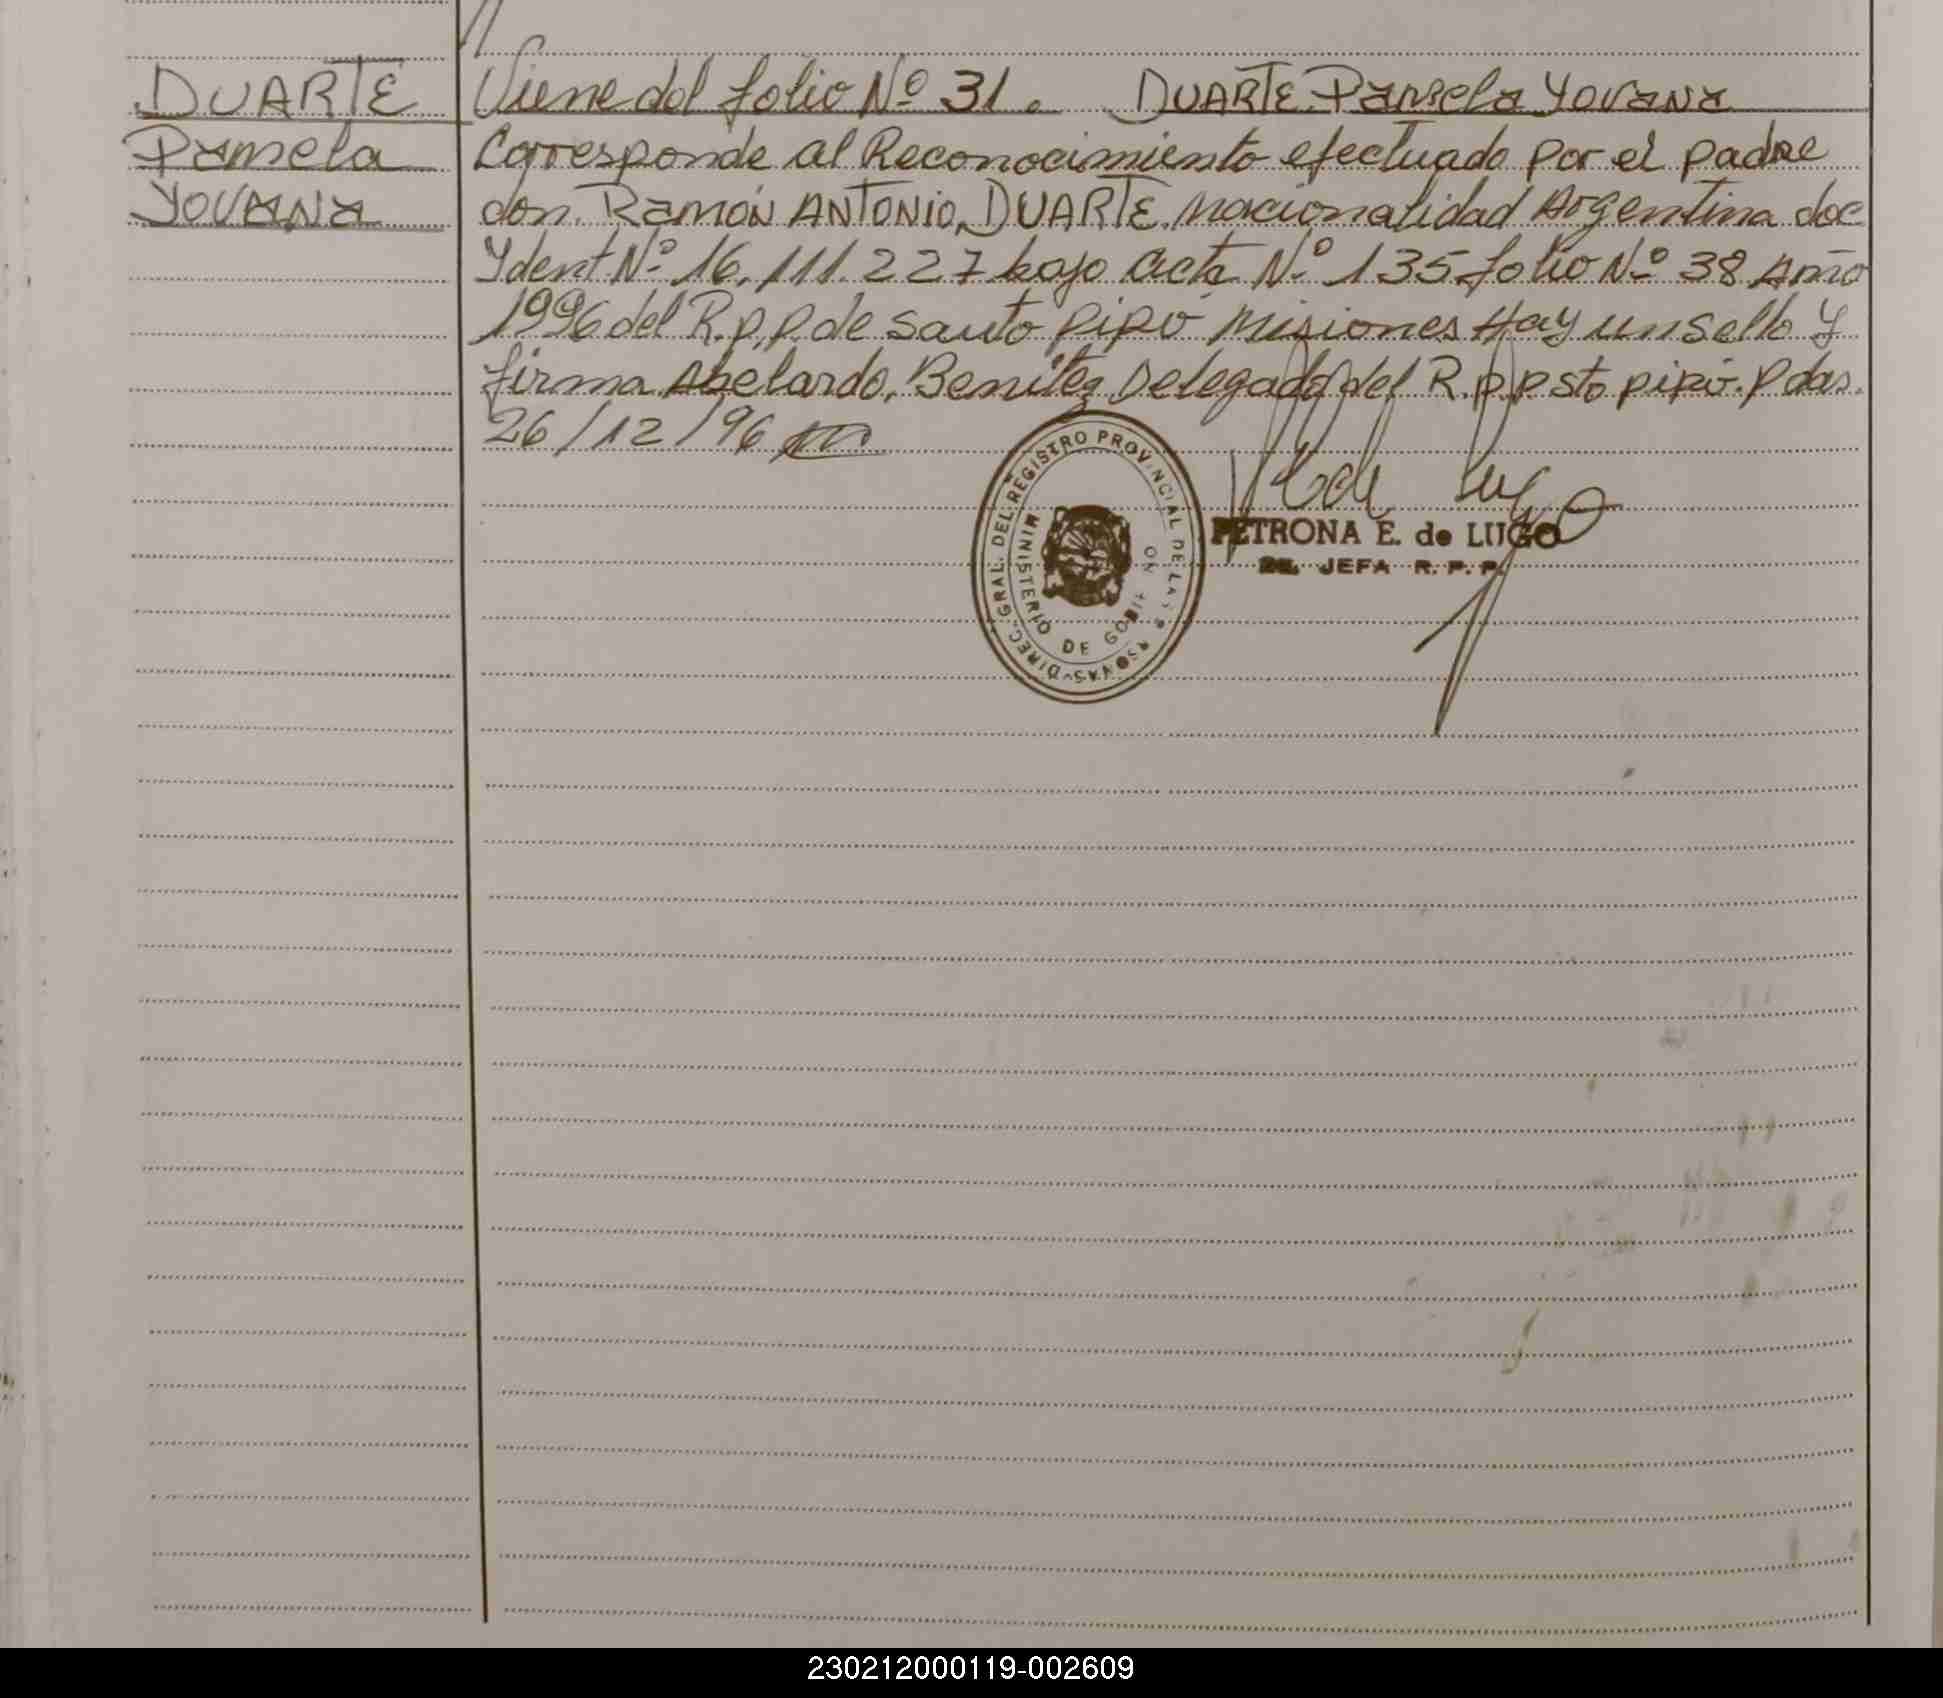 DUARTE
Pamela
YOVANA
Viene del folio Nº 31. DUARTE Pamela YOVANA
Corresponde al Reconocimiento efectuado por el padre
don. Ramón ANTONIO, DUARTE, nacionalidad Argentina doc
Ydent Nº 16.111.227 bajo acta Nº 135 folio Nº 38 Año
1996 del R.p.p. de santo pipó Misiones Hay un sello y
firma Abelardo, Benitez Delegado del R.p.p sto pipó. Pdas.
26/12/96
DIREC. GRAL. DEL REGISTRO PROVINCIAL DE LAS PERSONAS
MINISTERIO DE GOBIERNO
PETRONA E. de LUGO
JEFA R. P. P.
230212000119-002609